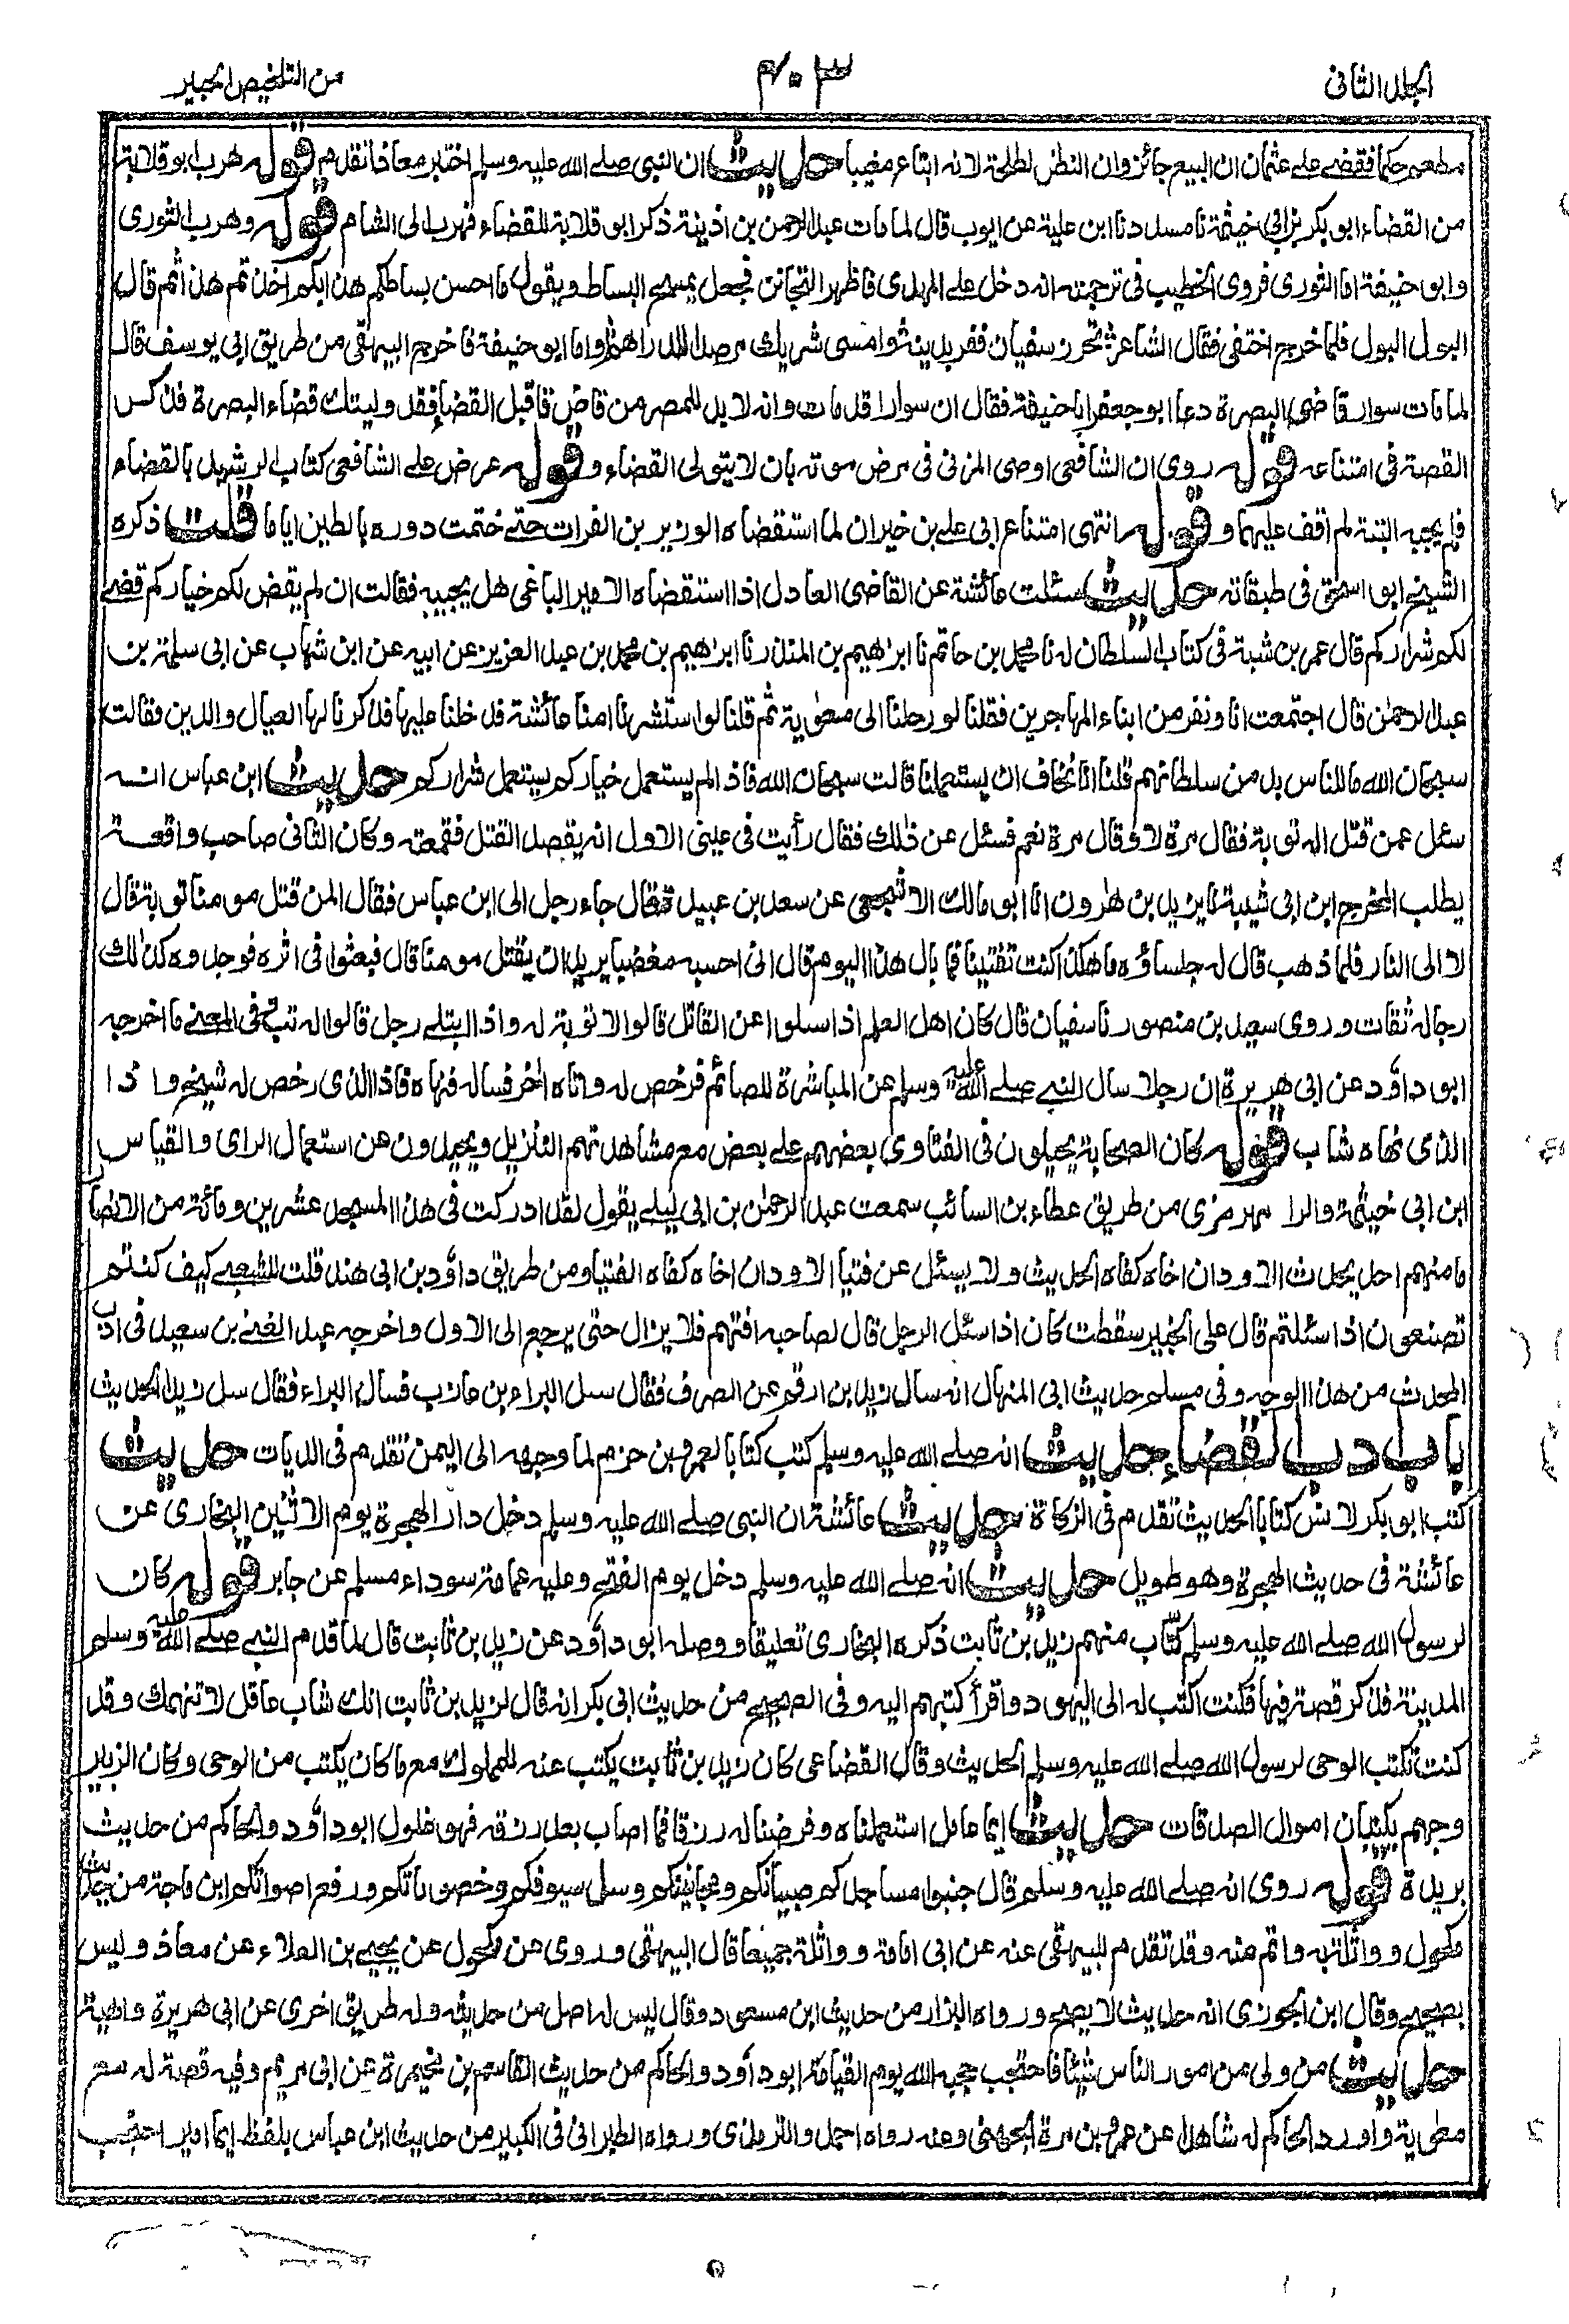 الجلد الثانی
۴۰۳
من التلخیص الحبیر
مطعم حکما فقضے علے عثمان ان البیع جائز وان النظر لطلحة لانہ ابتاع مغیبا حدیث ان النبی صلے الله علیہ وسلم اختبر معاذا تقدم قولہ هرب ابو قلابة
من القضاء ابو بکر بن ابی خیثمة نا مسدد نا ابن علیة عن ایوب قال لما مات عبد الرحمن بن اذینة ذکر ابو قلابة للقضاء فهرب الی الشام قولہ وهرب الثوری
وابو حنیفة اما الثوری فروی الخطیب فی ترجمتہ انہ دخل علے المهدی فاظهر التجانن فجعل یمسح البساط ویقول ما احسن بساطکم هذا بکم اخذتم هذا ثم قال
البول البول فلما خرج اختفی فقال الشاعر تحرز سفیان ففر بدینہ وامسی شریک مرصدا للدراهم واما ابو حنیفة فاخرج البیهقی من طریق ابی یوسف قال
لما مات سوار قاضی البصرة دعا ابو جعفر ابا حنیفة فقال ان سوارا قد مات وانہ لا بد للمصر من قاض فاقبل القضاء فقد ولیتک قضاء البصرة فذکر
القصة فی امتناعہ قولہ روی ان الشافعی اوصی المزنی فی مرض موتہ بان لا یتولی القضاء وقولہ عرض علے الشافعی کتاب الرشید بالقضاء
فلم یجبہ البتة لم اقف علیهما وقولہ انتهی امتناع ابی علے بن خیران لما استقضاه الوزیر بن الفرات حتے ختمت دوره بالطین ایاما قلت ذکره
الشیخ ابو اسحق فی طبقاتہ حدیث سئلت عائشة عن القاضی العادل اذا استقضاه الامیر الباغی هل یجیبہ فقالت ان لم یقض لکم خیارکم قضے
لکم شرارکم قال عمر بن شبة فی کتاب السلطان لہ نا محمد بن حاتم نا ابرٰهیم بن المنذر نا ابرٰهیم بن محمد بن عبد العزیز عن ابیہ عن ابن شهاب عن ابی سلمة بن
عبد الرحمٰن قال اجتمعت انا ونفر من ابناء المهاجرین فقلنا لو رحلنا الی معٰویة ثم قلنا لو استشرنا امنا عائشة فدخلنا علیها فذکرنا لها العیال والدین فقالت
سبحان الله ما للناس بد من سلطانهم قلنا انا نخاف ان یستعملنا قالت سبحان الله فاذا لم یستعمل خیارکم یستعمل شرارکم حدیث ابن عباس انہ
سئل عمن قتل الہ توبة فقال مرة لا وقال مرة نعم فسئل عن ذٰلک فقال رأیت فی عینی الاول انہ یقصد القتل فقمعتہ وکان الثانی صاحب واقعة
یطلب المخرج ابن ابی شیبة نا یزید بن هٰرون انا ابو مالک الاشجعی عن سعد بن عبیدة قال جاء رجل الی ابن عباس فقال المن قتل مومنا توبة قال
لا الی النار فلما ذهب قال لہ جلساؤه ما هکذا کنت تفتینا فما بال هذا الیوم قال انی احسبہ مغضبا یرید ان یقتل مومنا قال فبعثوا فی اثره فوجدوه کذٰلک
رجالہ ثقات وروی سعید بن منصور نا سفیان قال کان اهل العلم اذا سئلوا عن القاتل قالوا لا توبة لہ واذا ابتلے رجل قالوا لہ تب وفی المعنے ما اخرجہ
ابو داؤد عن ابی هریرة ان رجلا سال النبے صلے الله علیہ وسلم عن المباشرة للصائم فرخص لہ واتاه اٰخر فسالہ فنهاه فاذا الذی رخص لہ شیخ واذا
الذی نهاه شاب قولہ کان الصحابة یحیلون فی الفتاوی بعضهم علے بعض مع مشاهدتهم التنزیل ویحیدون عن استعمال الرای والقیاس
ابن ابی خیثمة والرامهرمزی من طریق عطاء بن السائب سمعت عبد الرحمٰن بن ابی لیلے یقول لقد ادرکت فی هذا المسجد عشرین ومائة من الانصار
ما منهم احد یحدث الا ود ان اخاه کفاه الحدیث ولا یسئل عن فتیا الا ود ان اخاه کفاه الفتیا ومن طریق داؤد بن ابی هند قلت للشعبے کیف کنتم
تصنعون اذا سئلتم قال علی الخبیر سقطت کان اذا سئل الرجل قال لصاحبہ افتهم فلا یزال حتی یرجع الی الاول واخرجہ عبد الغنے بن سعید فی ادب
المحدث من هذا الوجہ وفی مسلم حدیث ابی المنهال انہ سال زید بن ارقم عن الصرف فقال سل البراء بن عازب فسال البراء فقال سل زیدا الحدیث
باب ادب القضاء حدیث انہ صلے الله علیہ وسلم کتب کتابا لعمرو بن حزم لما وجهہ الی الیمن تقدم فی الدیات حدیث
کتب ابو بکر لانس کتابا الحدیث تقدم فی الزکاة حدیث عائشة ان النبی صلے الله علیہ وسلم دخل دار الهجرة یوم الاثنین البخاری عن
عائشة فی حدیث الهجرة وهو طویل حدیث انہ صلے الله علیہ وسلم دخل یوم الفتح وعلیہ عمامة سوداء مسلم عن جابر قولہ کان
لرسول الله صلے الله علیہ وسلم کتّاب منهم زید بن ثابت ذکره البخاری تعلیقا ووصلہ ابو داؤد عن زید بن ثابت قال لما قدم النبے صلے الله علیہ وسلم
المدینة فذکر قصة فیها فکنت اکتب لہ الی الیهود واقرأ کتبهم الیہ وفی الصحیح من حدیث ابی بکر انہ قال لزید بن ثابت انک شاب عاقل لا نتهمک وقد
کنت تکتب الوحی لرسول الله صلے الله علیہ وسلم الحدیث وقال القضاعی کان زید بن ثابت یکتب عنہ للملوک مع ما کان یکتب من الوحی وکان الزبیر
وجهم یکتبان اموال الصدقات حدیث ایما عامل استعملناه وفرضنا لہ رزقا فما اصاب بعد رزقہ فهو غلول ابو داؤد والحاکم من حدیث
بریدة قولہ روی انہ صلے الله علیہ وسلم قال جنبوا مساجدکم صبیانکم ومجانینکم وسل سیوفکم وخصوماتکم ورفع اصواتکم ابن ماجة من حدیث
مکحول وواثلة بہ واتم منہ وقد تقدم للبیهقی عنہ عن ابی امامة وواثلة جمیعا قال البیهقی وروی عن مکحول عن یحیے بن العلاء عن معاذ ولیس
بصحیح وقال ابن الجوزی انہ حدیث لا یصح ورواه البزار من حدیث ابن مسعود وقال لیس لہ اصل من حدیثہ ولہ طریق اخری عن ابی هریرة واهیة
حدیث من ولی من امور الناس شیئا فاحتجب حجبہ الله یوم القیامة ابو داؤد والحاکم من حدیث القاسم بن مخیمرة عن ابی مریم وفیہ قصة لہ مع
معٰویة واورد الحاکم لہ شاهدا عن عمرو بن مرة الجهنی وعنہ رواه احمد والترمذی ورواه الطبرانی فی الکبیر من حدیث ابن عباس بلفظ ایما امیر احتجب